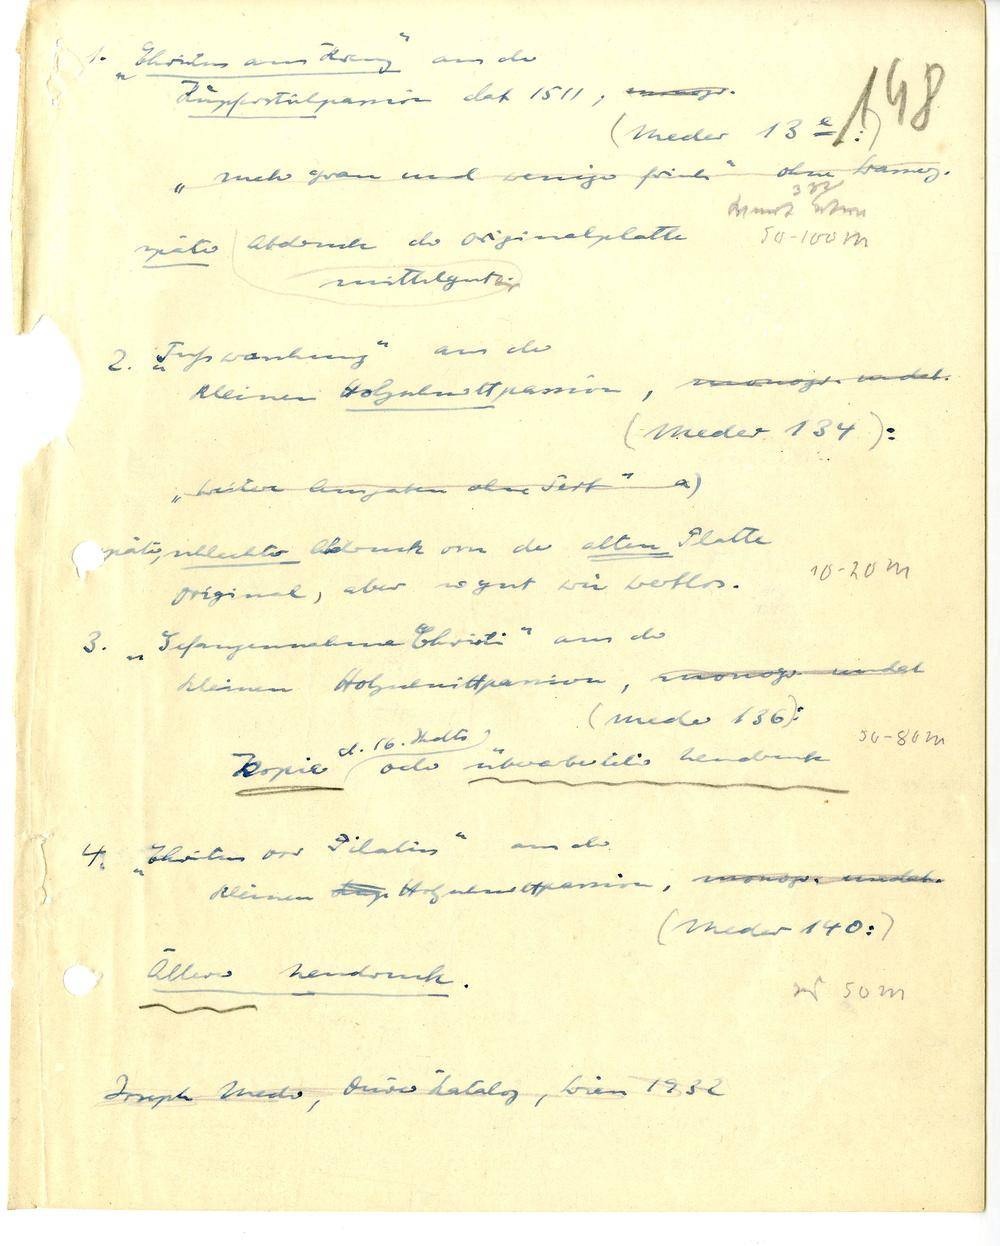 148
1. „Christus am Kreuz“ aus der
Kupferstichpassion dat 1511, monogr.
(Meder 13 e:)
„mehr grau und weniger frisch“ ohne Wasserz.
50-100 M
späte Abdruck der Originalplatte
mittelgut
2. „Fusswaschung“ aus der
kleinen Holzschnittpassion, monogr. undat.
(Meder 134):
„weitere Ausgaben ohne Text“ a)
späte, schlechte Abdruck von der alten Platte
Original, aber so gut wie wertlos.
10-20 M
3. „Gefangennahme Christi“ aus der
kleinen Holzschnittpassion, monogr. undat
(Meder 136):
50-80 M
d. 16. Jhdts
Kopie oder überarbeiteter Neudruck
4. „Christus vor Pilatus“ aus der
kleinen Kupf Holzschnittpassion, monogr. undat.
(Meder 140:)
Älterer Neudruck.
50 M
Joseph Meder, Dürer Katalog, Wien 1932